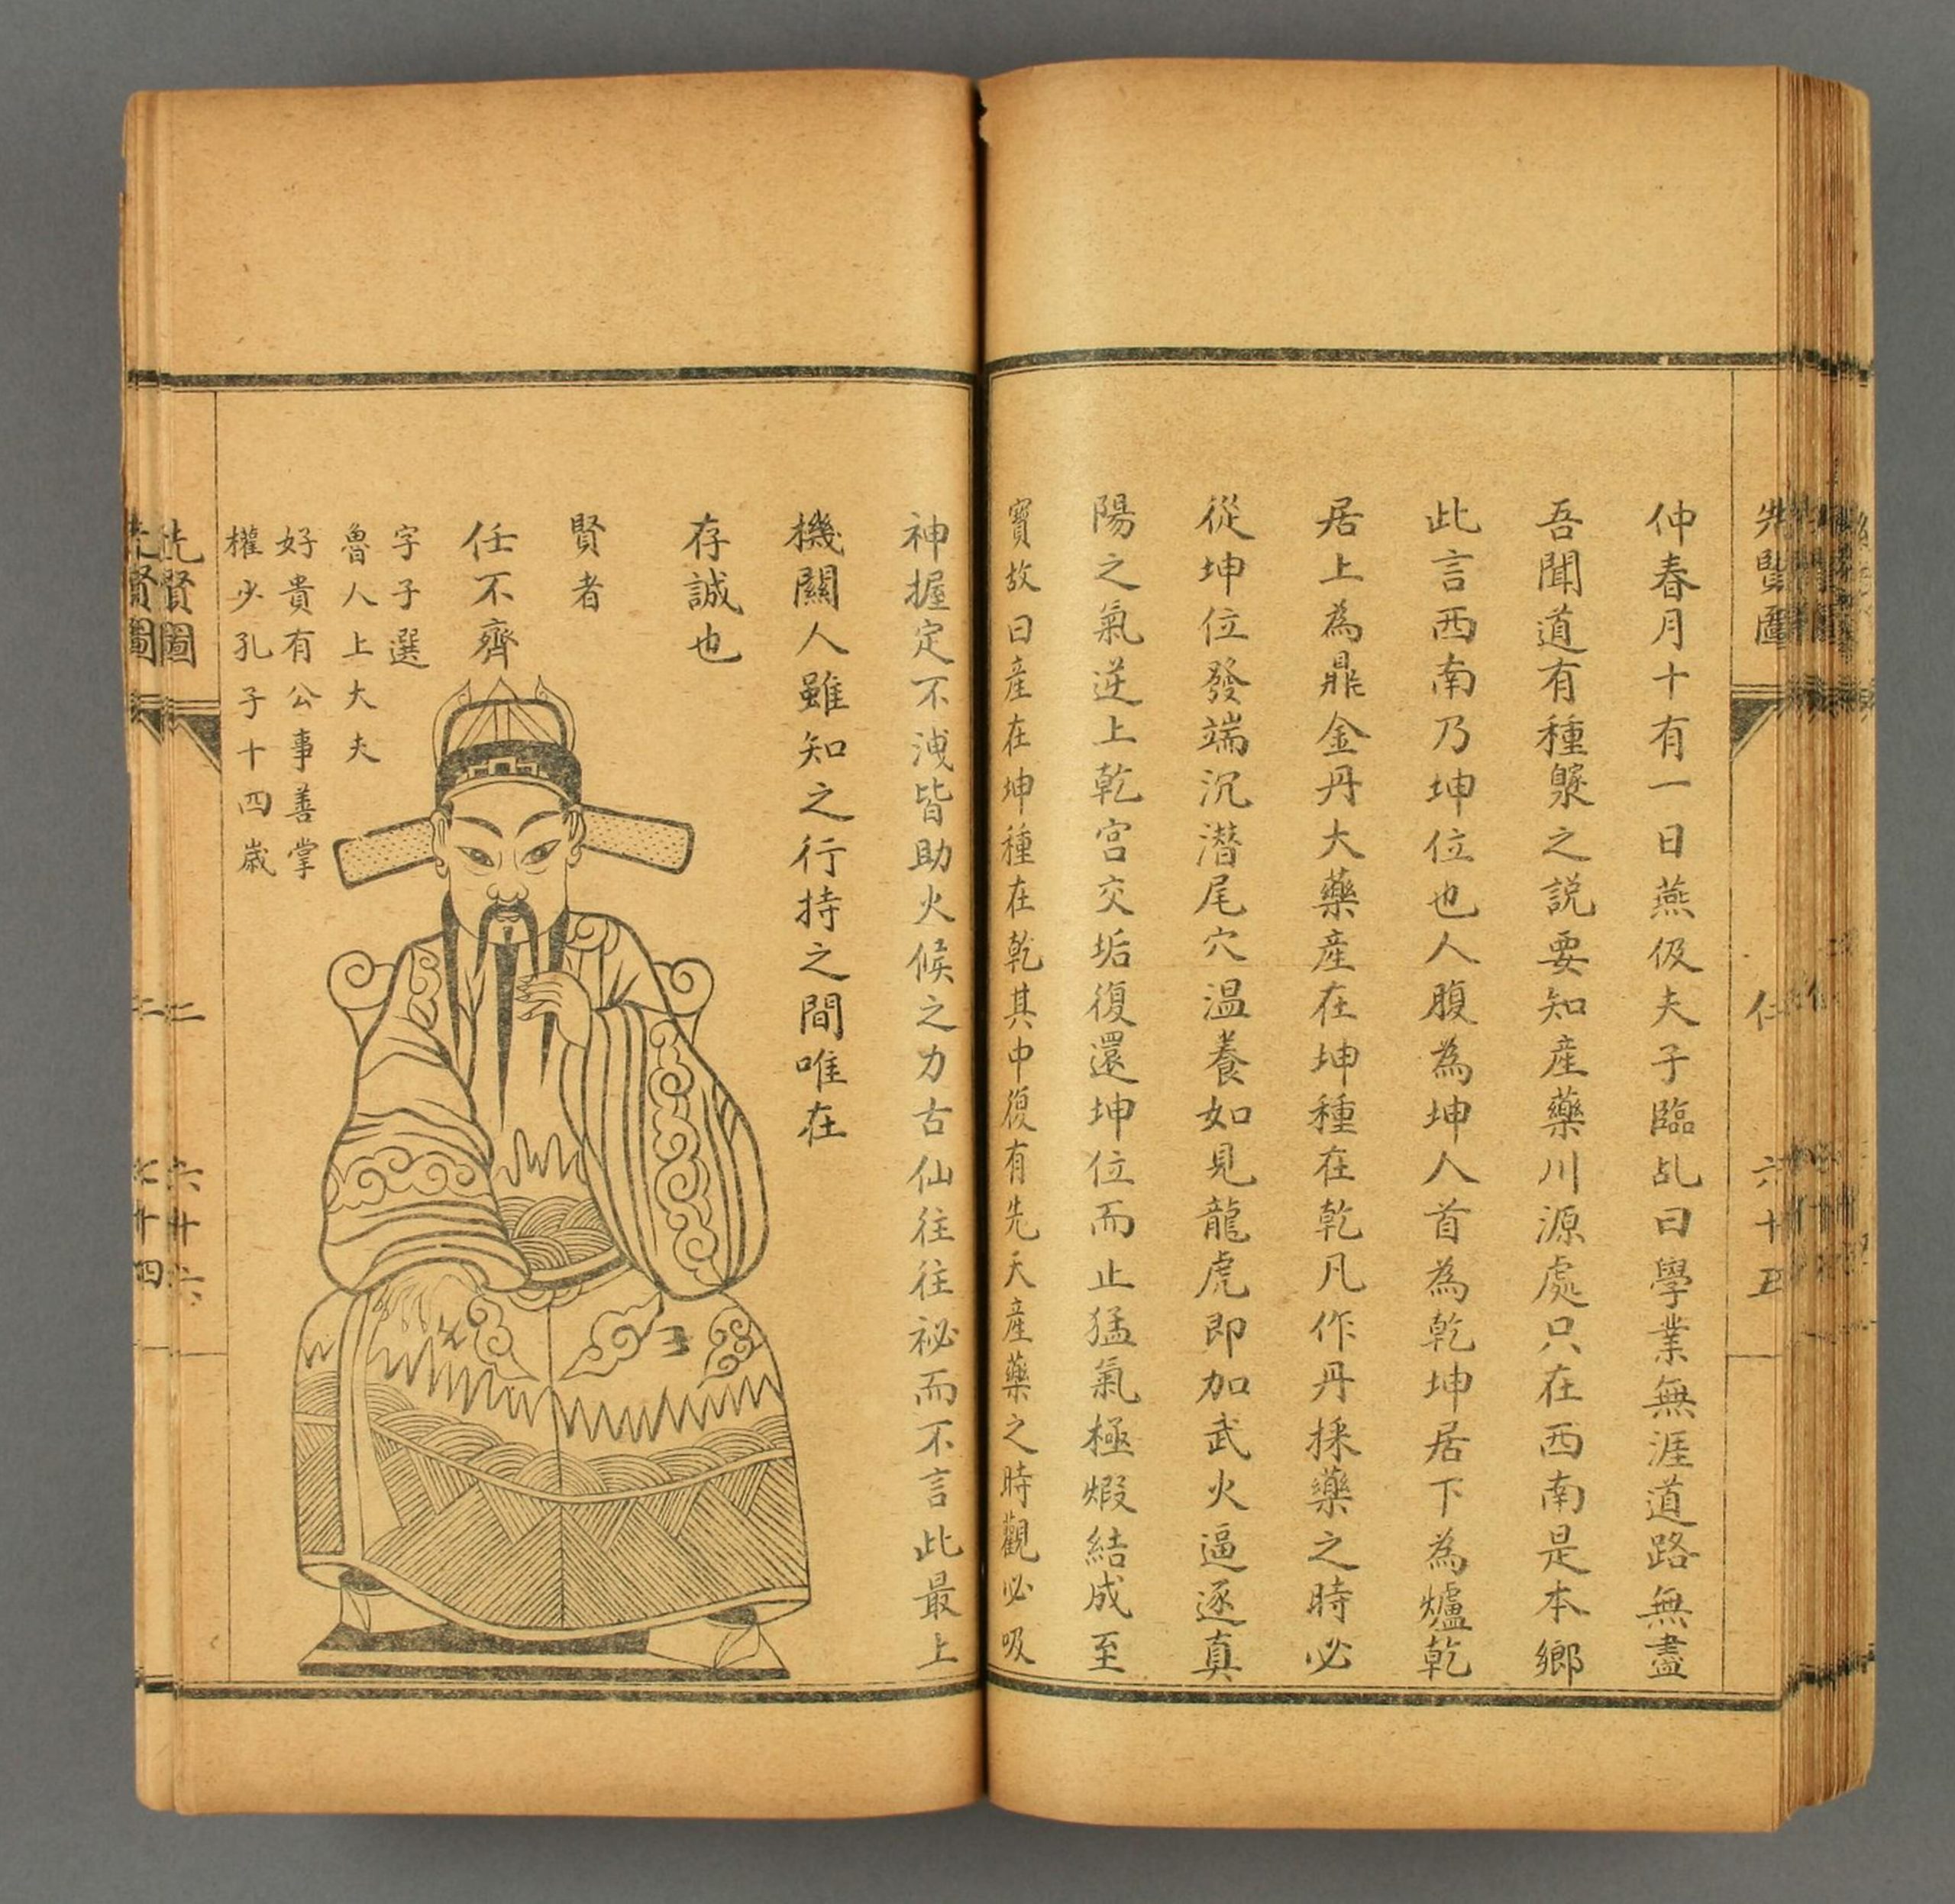 仲春月十有一日燕伋夫子臨乩曰學業無涯道路無盡
吾聞道有種聚之説要知産藥川源處只在西南是本鄉
此言西南乃坤位也人腹為坤人首為乾坤居下為爐乾
居上為鼎金丹大藥産在坤種在乾凡作丹採藥之時必
從坤位發端沉潛尾穴温養如見龍虎即加武火逼逐真
陽之氣逆上乾宮交垢復還坤位而止猛氣極煅結成至
寶故曰産在坤種在乾其中復有先天産藥之時觀必吸
神握定不洩皆助火候之力古仙往往祕而不言此最上
機關人雖知之行持之間唯在
存誠也
賢者
任不齊
字子選
魯人上大夫
好貴有公事善掌
權少孔子十四歲
先賢圖
仁
六十五
先賢圖
仁
六十六